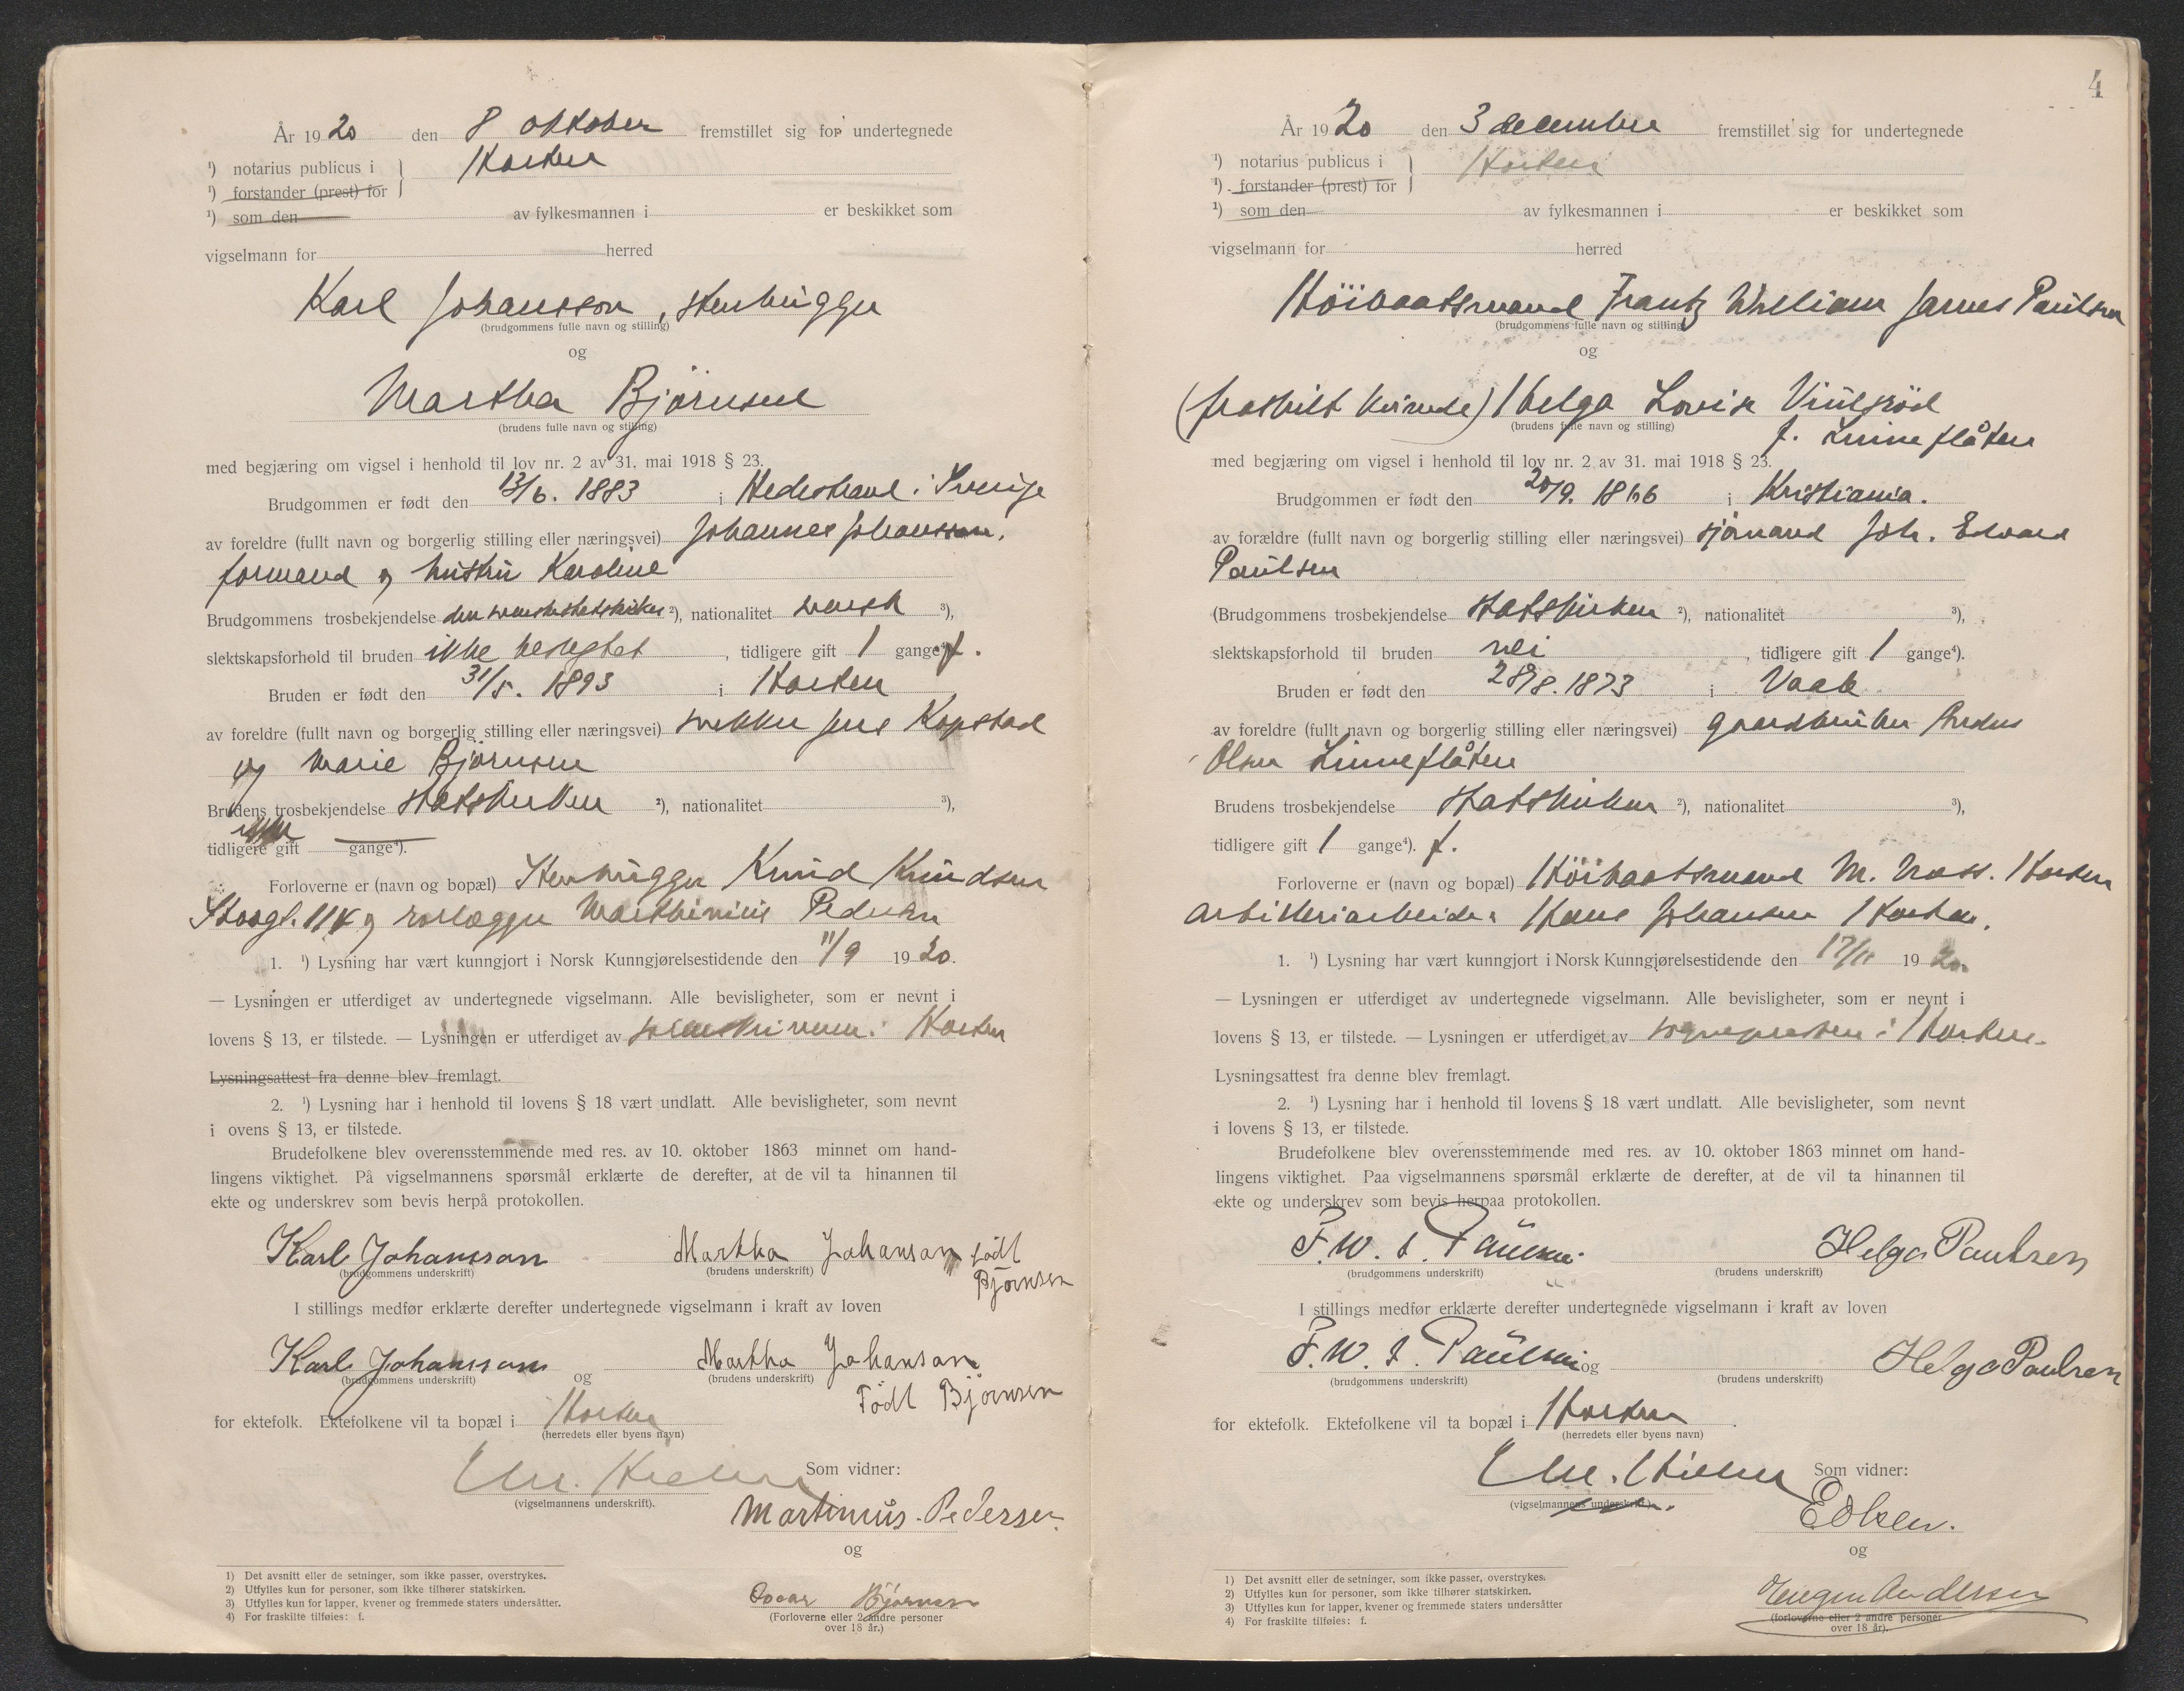 År 1920 den 8 oktober fremstillet sig for undertegnede
¹) notarius publicus i Horten
¹) forstander (prest) for
¹) som den av fylkesmannen i er beskikket som
vigselmann for herred
Karl Johansson, stenhugger
(brudgommens fulle navn og stilling)
og
Martha Björnsen
(brudens fulle navn og stilling)
med begjæring om vigsel i henhold til lov nr. 2 av 31. mai 1918 § 23.
Brudgommen er født den 13/6. 1883 i Hedestrand i Sverige
av foreldre (fullt navn og borgerlig stilling eller næringsvei) Johannes Johansson,
formand og hustru Karoline
Brudgommens trosbekjendelse den svenske statskirke ²), nationalitet svensk ³),
slektskapsforhold til bruden ikke beslegtet, tidligere gift 1 gange⁴) f.
Bruden er født den 31/5. 1893 i Horten
av foreldre (fullt navn og borgerlig stilling eller næringsvei) Jens Kopstad
og Marie Björnsen
Brudens trosbekjendelse statskirken ²), nationalitet ³),
tidligere gift gange⁴).
Forloverne er (navn og bopæl) Stenhugger Knud Knudsen
Storgt. 114 og rørlægger Marthinius Pedersen
1. ¹) Lysning har vært kunngjort i Norsk Kunngjørelsestidende den 11/9 1920.
— Lysningen er utferdiget av undertegnede vigselmann. Alle bevisligheter, som er nevnt i
lovens § 13, er tilstede. — Lysningen er utferdiget av sorenskriveren i Horten
Lysningsattest fra denne blev fremlagt.
2. ¹) Lysning har i henhold til lovens § 18 vært undlatt. Alle bevisligheter, som nevnt
i ovens § 13, er tilstede.
Brudefolkene blev overensstemmende med res. av 10. oktober 1863 minnet om hand-
lingens viktighet. På vigselmannens spørsmål erklærte de derefter, at de vil ta hinannen til
ekte og underskrev som bevis herpå protokollen.
Karl Johansson Martha Johanson född
(brudgommens underskrift) (brudens underskrift)
Björnsen
I stillings medfør erklærte derefter undertegnede vigselmann i kraft av loven
Karl Johansson og Martha Johanson
(brudgommens underskrift) (brudens underskrift)
Född Björnsen
for ektefolk. Ektefolkene vil ta bopæl i Horten
(herredets eller byens navn)
Som vidner:
(vigselmannens underskrift).
Martinius Pedersen
og
Oscar Björnsen
(Forloverne eller 2 andre personer
over 18 år.)
1) Det avsnitt eller de setninger, som ikke passer, overstrykes.
2) Utfylles kun for personer, som ikke tilhører statskirken.
3) Utfylles kun for lapper, kvener og fremmede staters undersåtter.
4) For fraskilte tilføies: f.
4
År 1920 den 3 decembre fremstillet sig for undertegnede
¹) notarius publicus i Horten
¹) forstander (prest) for
¹) som den av fylkesmannen i er beskikket som
vigselmann for herred
Höibaatsmand Frantz William James Paulsen
(brudgommens fulle navn og stilling)
og
(fraskilt kvinde) Helga Lovise Viulsröd
(brudens fulle navn og stilling)
f. Linneflåten
med begjæring om vigsel i henhold til lov nr. 2 av 31. mai 1918 § 23.
Brudgommen er født den 20/9. 1866 i Kristiania.
av forældre (fullt navn og borgerlig stilling eller næringsvei) sjömand Joh. Edvard
Paulsen
(Brudgommens trosbekjendelse statskirken ²), nationalitet ³),
slektskapsforhold til bruden nei, tidligere gift 1 gange⁴).
Bruden er født den 28/8. 1873 i Vaale
av foreldre (fullt navn og borgerlig stilling eller næringsvei) gaardbruker Andreas
Olsen Linneflåten
Brudens trosbekjendelse statskirken ²), nationalitet ³),
tidligere gift 1 gange⁴). f.
Forloverne er (navn og bopæl) Höibaatsmand M. Næss. Horten
Artilleriarbeider Hans Johansen Horten.
1. ¹) Lysning har vært kunngjort i Norsk Kunngjørelsestidende den 17/11 1920
— Lysningen er utferdiget av undertegnede vigselmann. Alle bevisligheter, som er nevnt i
lovens § 13, er tilstede. — Lysningen er utferdiget av sognepresten i Horten.
Lysningsattest fra denne blev fremlagt.
2. ¹) Lysning har i henhold til lovens § 18 vært undlatt. Alle bevisligheter, som nevnt
i lovens § 13, er tilstede.
Brudefolkene blev overensstemmende med res. av 10. oktober 1863 minnet om hand-
lingens viktighet. Paa vigselmannens spørsmål erklærte de derefter, at de vil ta hinannen til
ekte og underskrev som bevis herpaa protokollen.
F. W. J. Paulsen Helga Paulsen
(brudgommens underskrift) (brudens underskrift)
I stillings medfør erklærte derefter undertegnede vigselmann i kraft av loven
F. W. J. Paulsen og Helga Paulsen
(brudgommens underskrift) (brudens underskrift)
for ektefolk. Ektefolkene vil ta bopæl i Horten.
(herredets eller byens navn)
Som vidner:
(vigselmannens underskrift).
E Olsen.
og
Andersen
(forloverne eller 2 andre personer
over 18 år).
1) Det avsnitt eller de setninger, som ikke passer, overstrykes.
2) Utfylles kun for personer, som ikke tilhører statskirken.
3) Utfylles kun for lapper, kvener og fremmede staters undersåtter
4) For fraskilte tilføies: f.